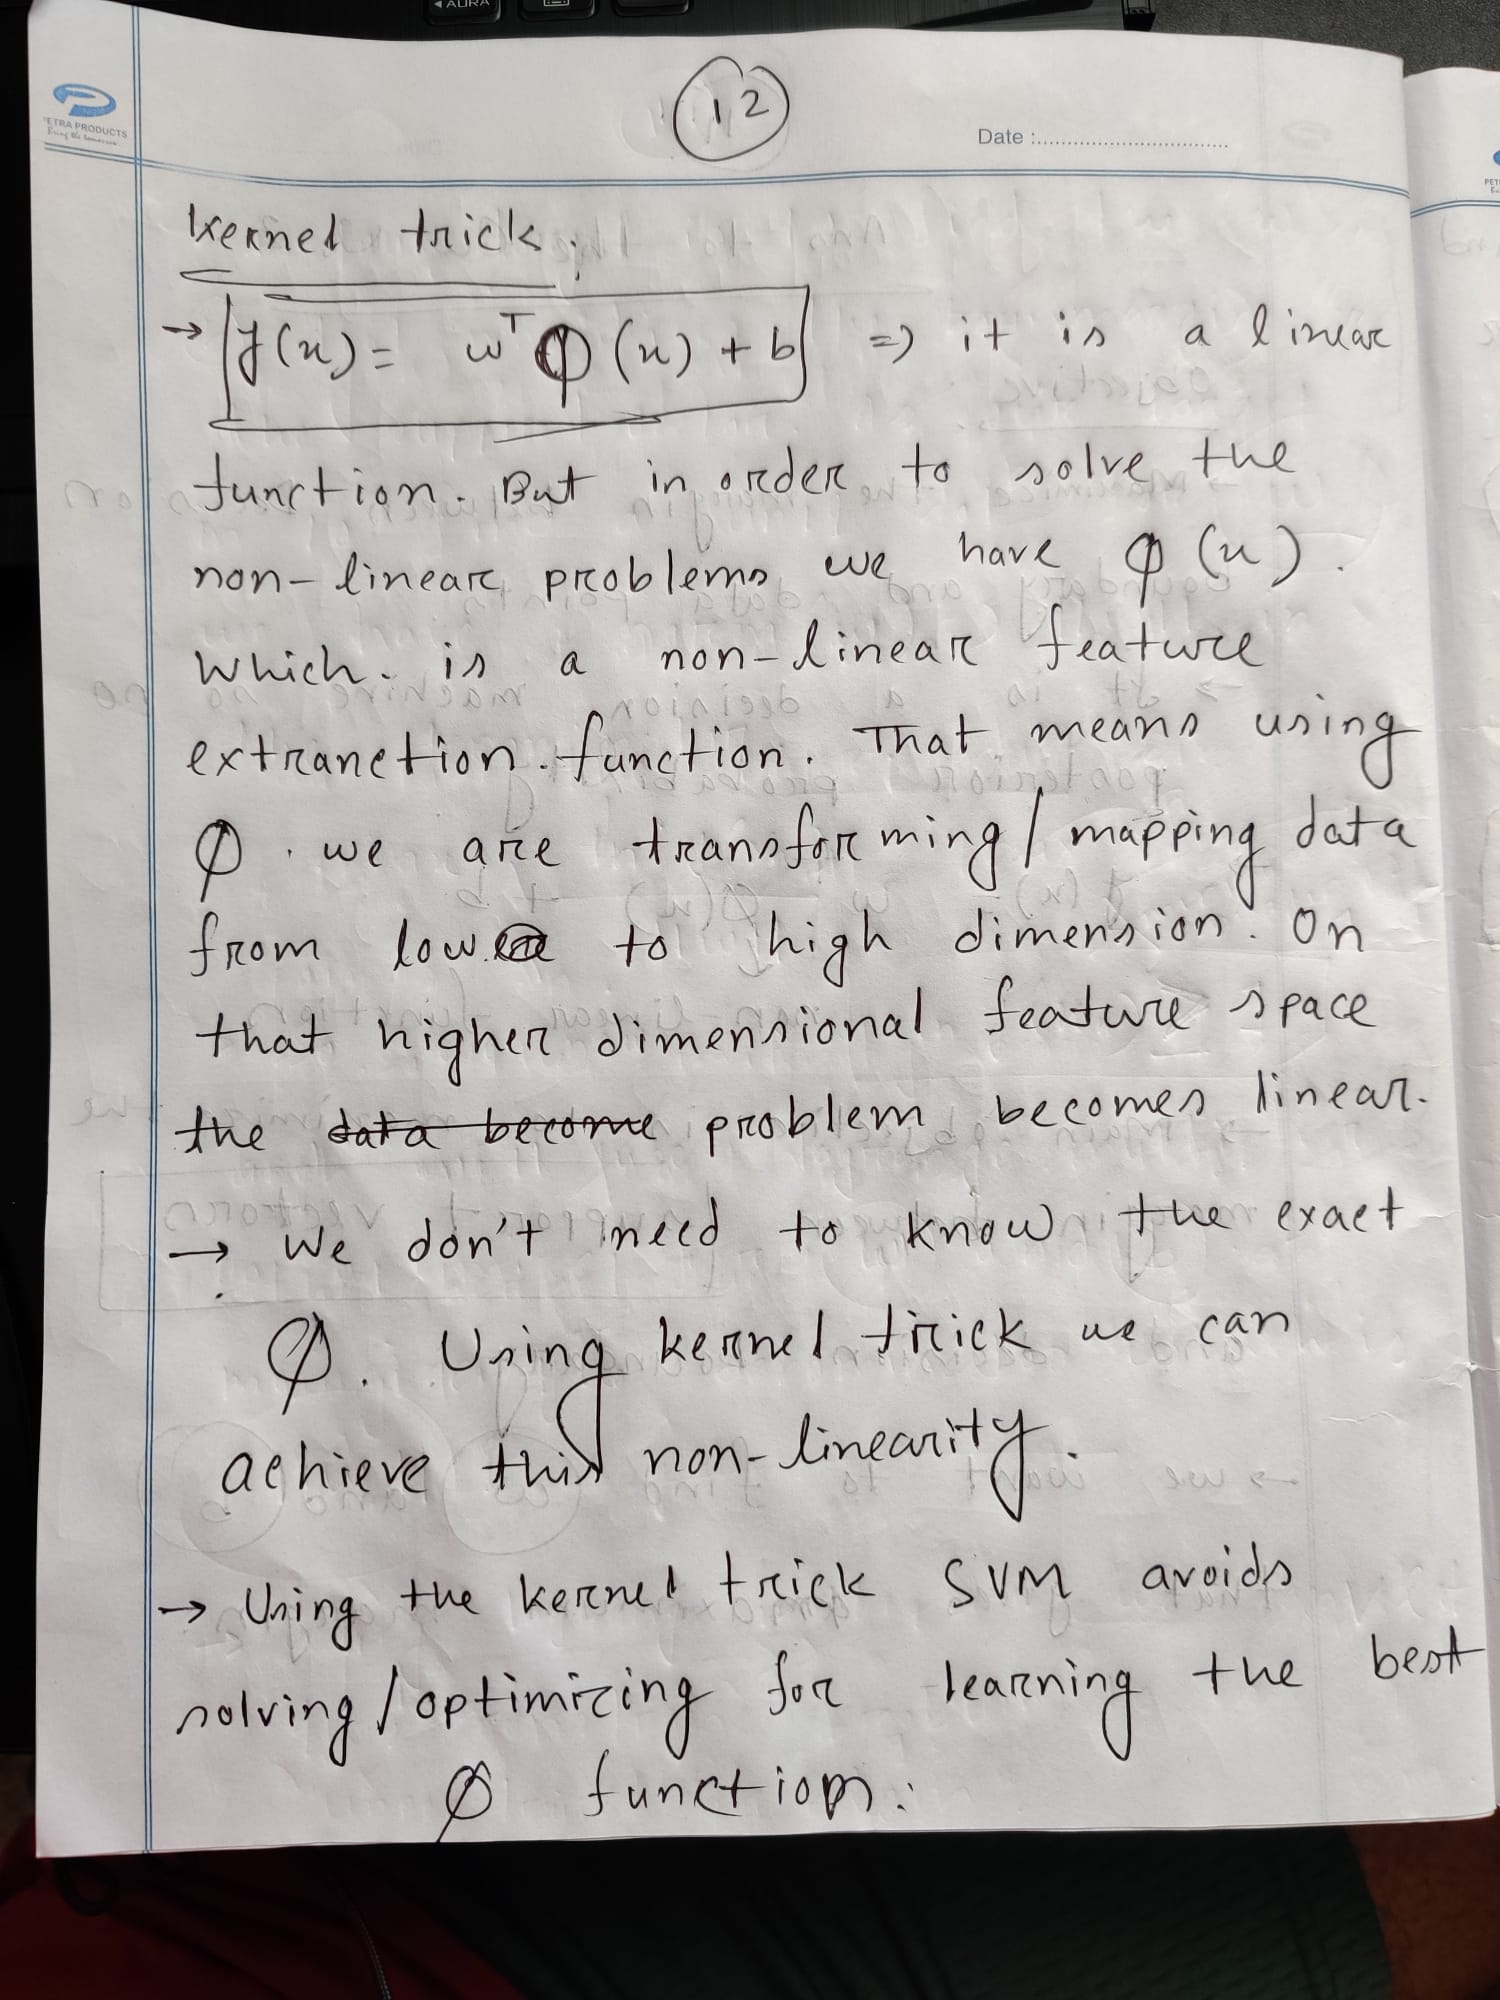 AURA
12
PETRA PRODUCTS
Bring the tomorrow
Date :
Kernel trick:
→ y(x) = wᵀφ(x) + b ⇒ it is a linear
function. But in order to solve the
non-linear problems we have φ(x).
Which is a non-linear feature
extranction function. That means using
φ. we are transforming/mapping data
from low to high dimension. On
that higher dimensional feature space
the data become problem becomes linear.
→ We don't need to know the exact
φ. Using kernel trick we can
achieve this non-linearity.
→ Using the kernel trick SVM avoids
solving/optimizing for learning the best
φ function.